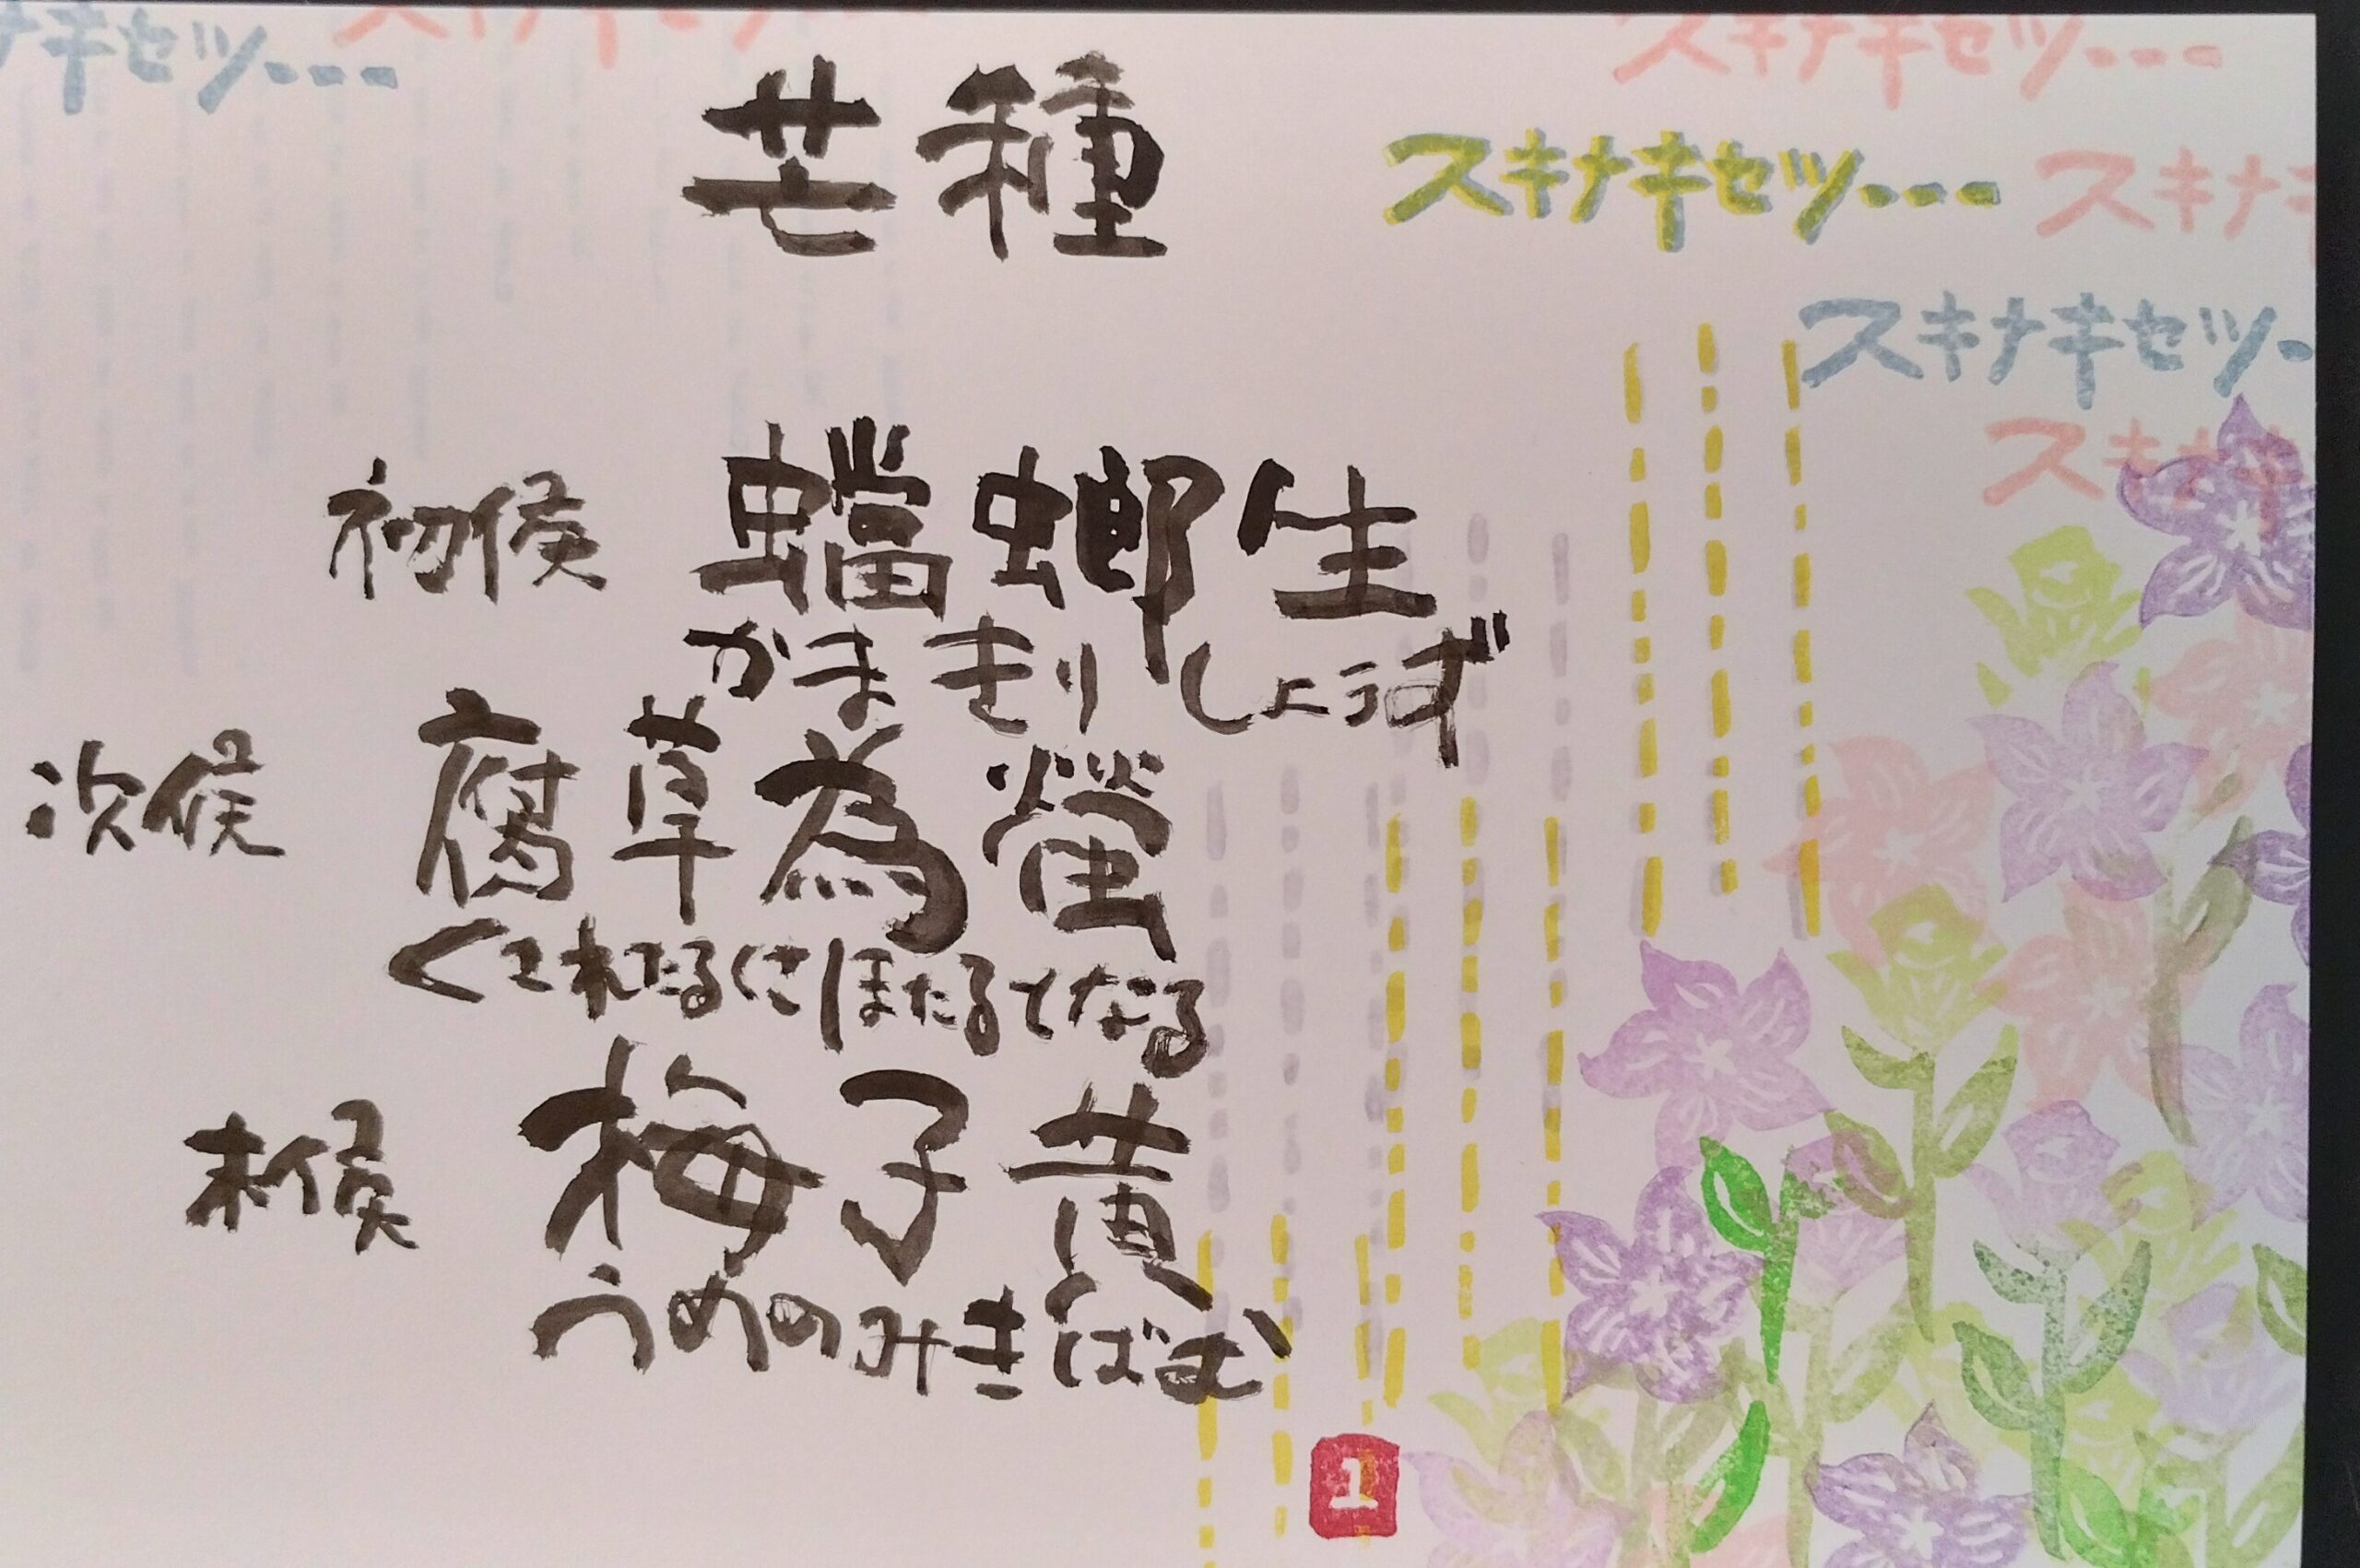 ナキセツ---
スキナキセツ---
スキナキセツ---
芒種
スキナキセツ---
スキナキ
スキナキセツ-
スキナキ
初候 蟷螂生
かまきりしょうず
次候 腐草為螢
くされたるくさほたるとなる
末候 梅子黄
うめのみきばむ
1